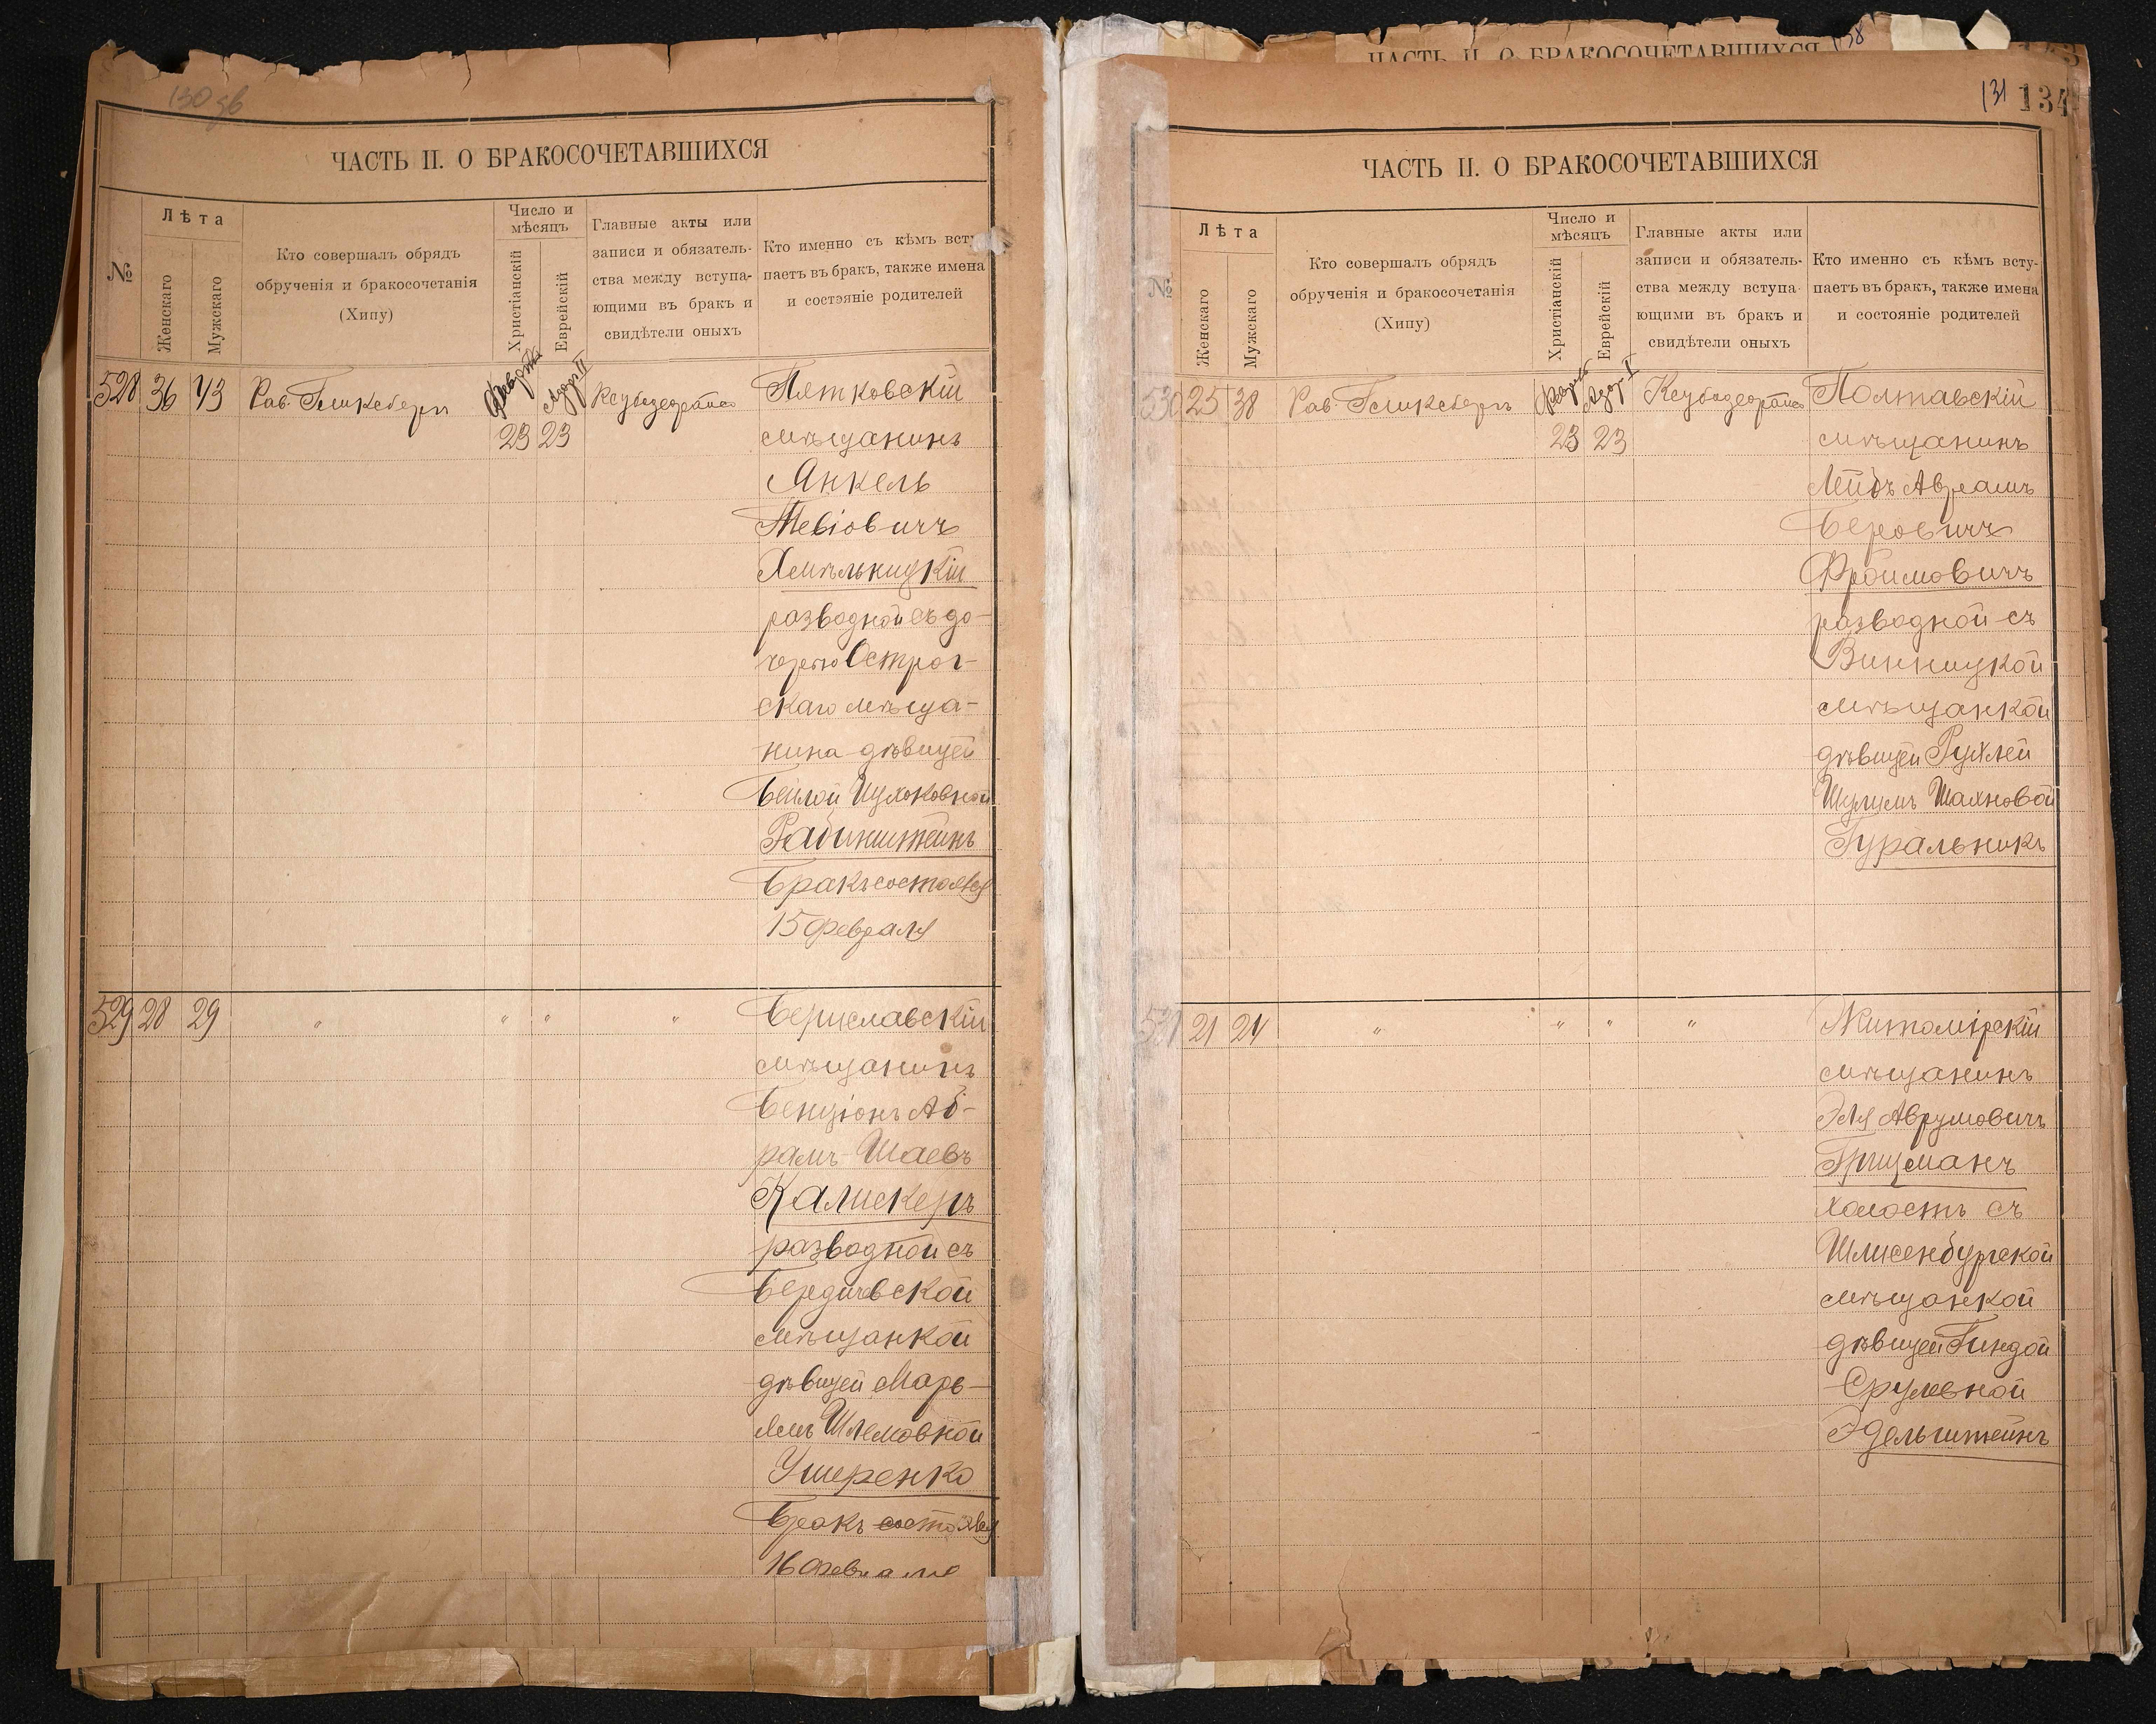 130 зв
ЧАСТЬ II. О БРАКОСОЧЕТАВШИХСЯ
№
Лѣта
Женскаго
Мужскаго
Кто совершалъ обрядъ
обрученія и бракосочетанія
(Хипу)
Число и
мѣсяцъ
Христіанскій
Еврейскій
Главные акты или
записи и обязатель-
ства между вступа-
ющими въ бракъ и
свидѣтели оныхъ
Кто именно съ кѣмъ всту
паетъ въ бракъ, также имена
и состояніе родителей
528 36 43 Рав. Гликсбергъ 23 23
Пятковскій
мѣщанинъ
Янкель
Тевіовичъ
Хмѣльницкій
разводной съ до-
черью Острог-
скаго мѣща-
нина дѣвицей
Бейлой Ицхоковной
Рабинштейнъ
Бракъ состоялся
15 февраля
529 28 29 " " " "
Бериславскій
мѣщанинъ
Бенціонъ Аб-
рамъ Шаевъ
Калискеръ
разводной съ
Бердичевской
мѣщанкой
дѣвицей Марь-
ямъ Шлемовной
Ушеренко
Бракъ состоялся
16 февраля
ЧАСТЬ II. О БРАКОСОЧЕТАВШИХСЯ
138
131 134
ЧАСТЬ II. О БРАКОСОЧЕТАВШИХСЯ
№
Лѣта
Женскаго
Мужскаго
Кто совершалъ обрядъ
обрученія и бракосочетанія
(Хипу)
Число и
мѣсяцъ
Христіанскій
Еврейскій
Главные акты или
записи и обязатель-
ства между вступа-
ющими въ бракъ и
свидѣтели оныхъ
Кто именно съ кѣмъ всту-
паетъ въ бракъ, также имена
и состояніе родителей
530 25 38 Рав. Гликсбергъ 23 23
Полтавскій
мѣщанинъ
Лейбъ Авраамъ
Беровичъ
Фроимовичъ
разводной съ
Винницкой
мѣщанкой
дѣвицей Рухлей
Шулимъ Шахновой
Гуральникъ
531 21 24 " " " "
Житомірскій
мѣщанинъ
Эля Аврумовичъ
Грицманъ
холостъ съ
Шлисенбургской
мѣщанкой
дѣвицей Гиндой
Срулевной
Эдельштейнъ